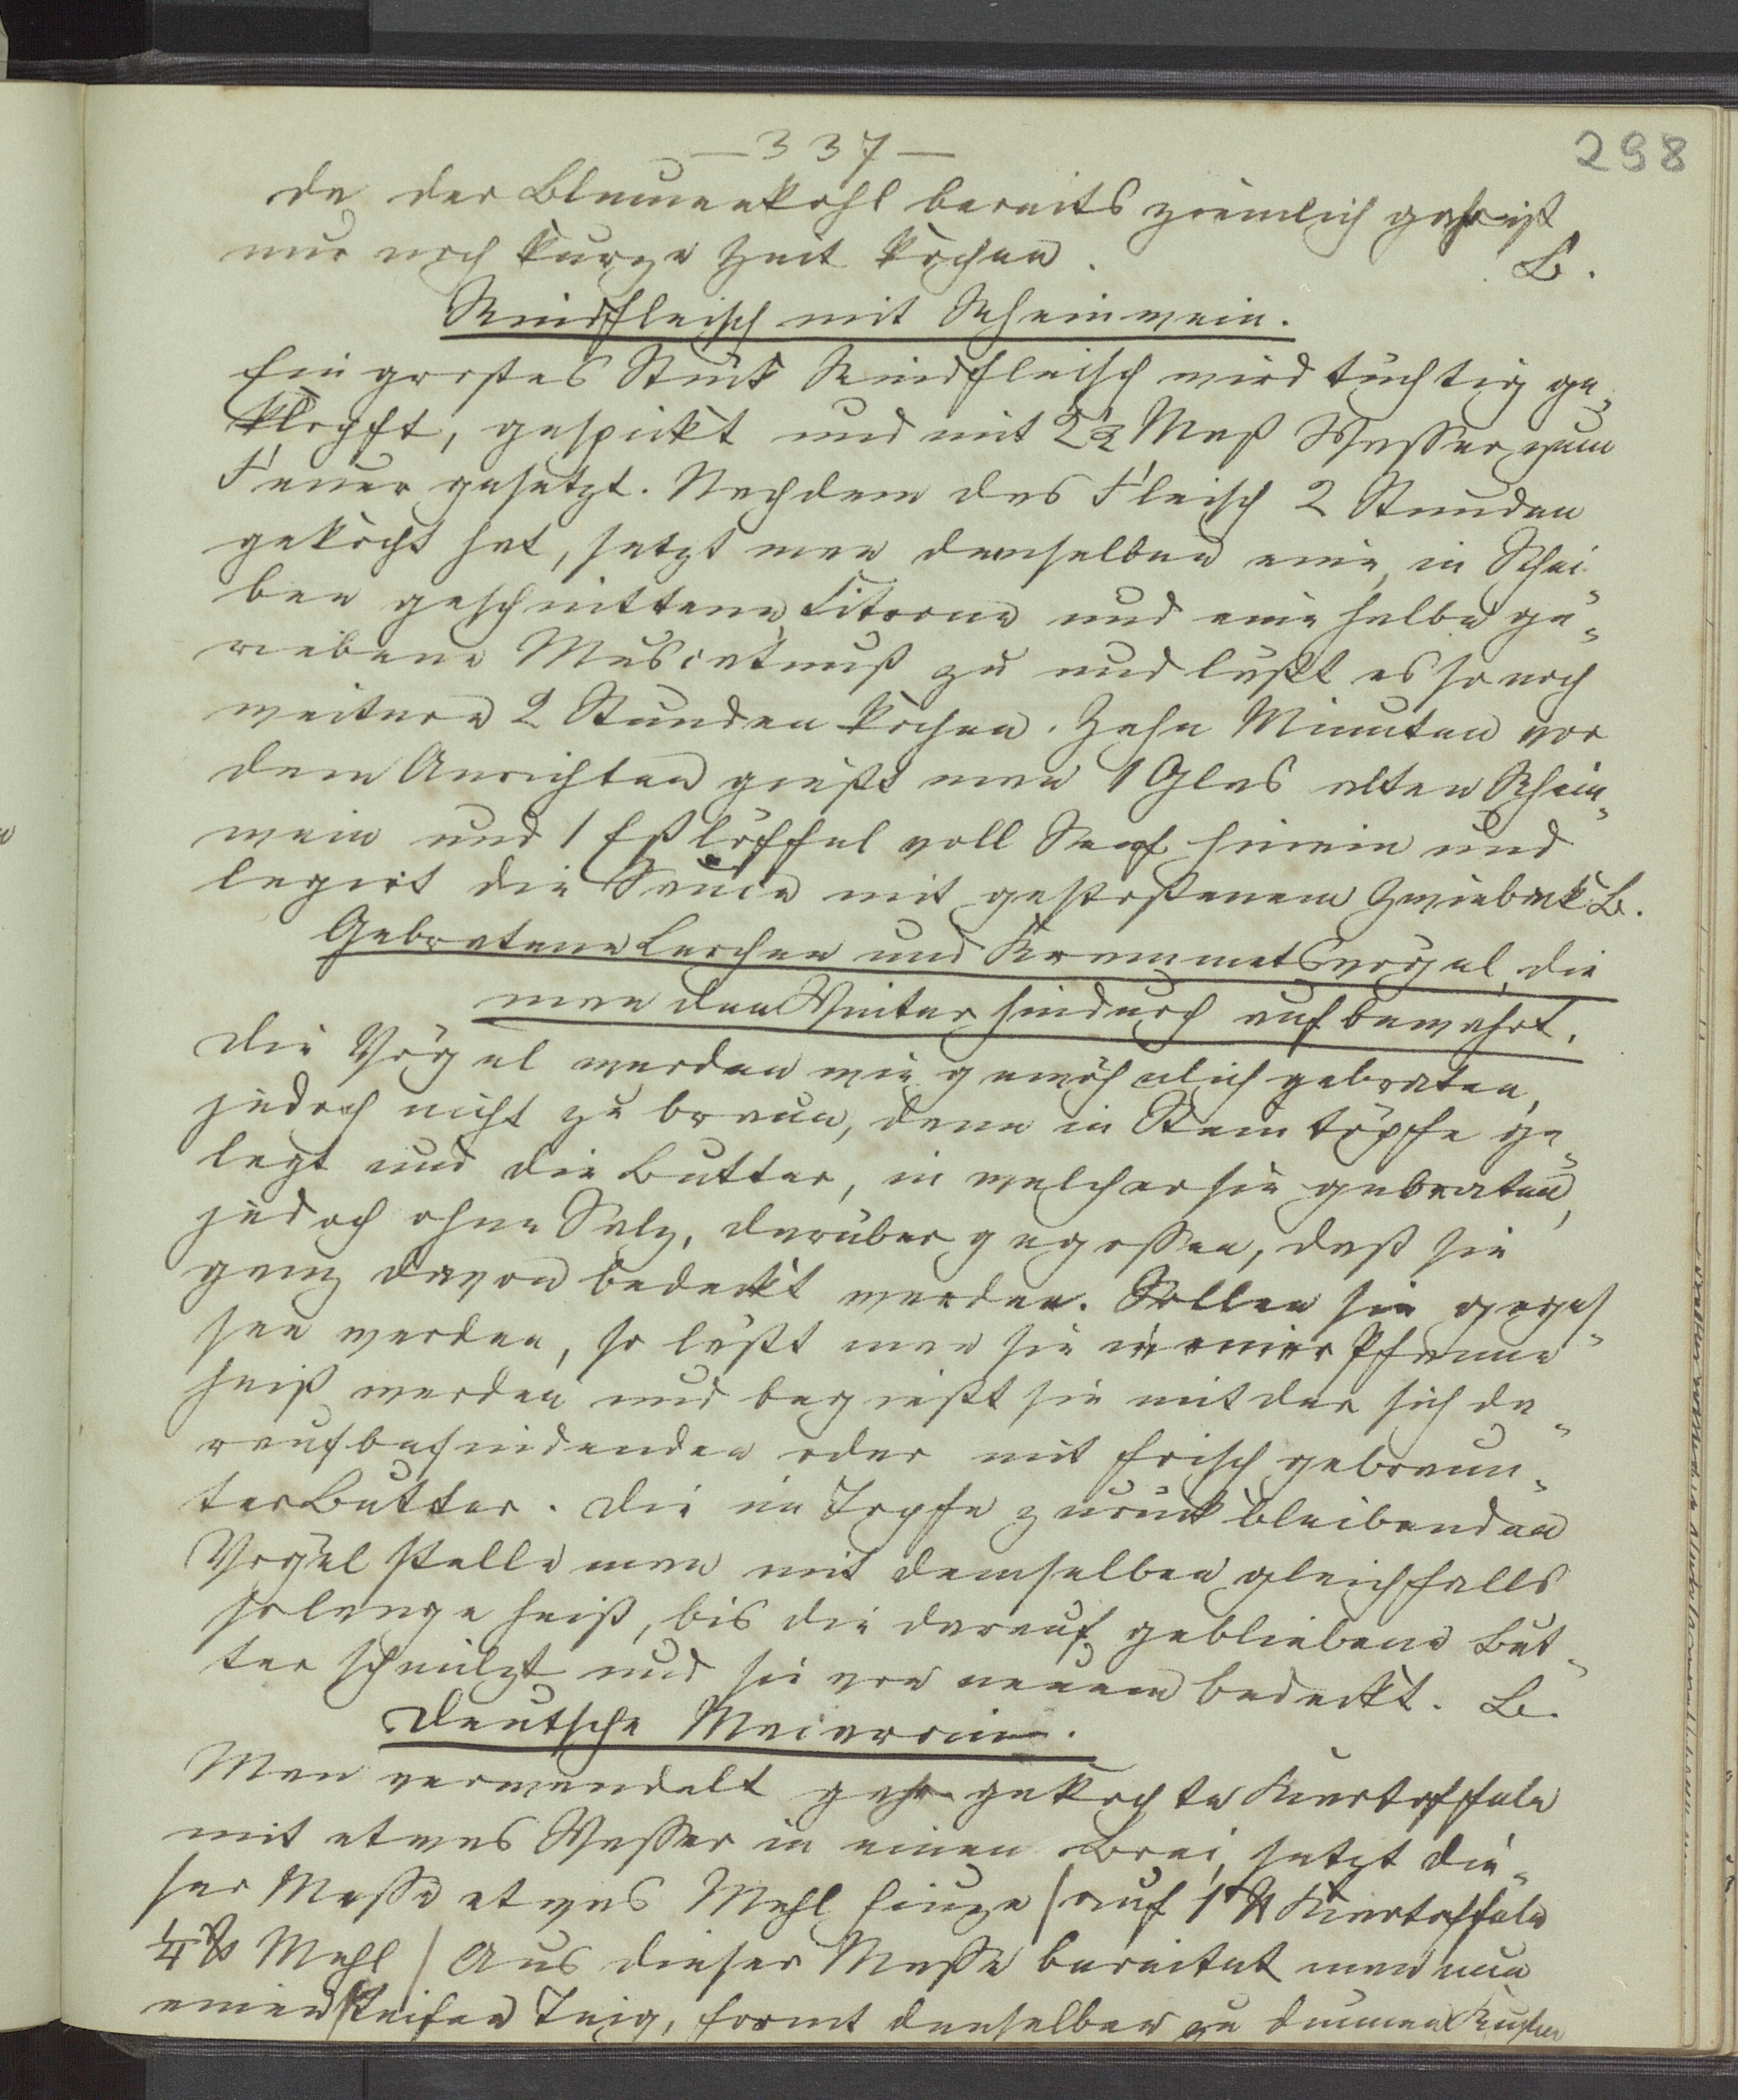 298
— 337 —
da der Blumenkohl bereits ziemlich gahr ist
nur noch kurze Zeit kochen. B.
Rindfleisch mit Rheinwein.
Ein großes Stück Rindfleisch wird tüchtig ge-
klopft, gespickt und mit 2½ Maß Wasser zum
Feuer gesetzt. Nachdem das Fleisch 2 Stunden
gekocht hat, setzt man demselben eine, in Schei-
ben geschnittene Citrone und eine halbe ge-
riebene Muscatnuß zu und läßt es so noch
weitere 2 Stunden kochen. Zehn Minuten vor
dem Anrichten gießt man 1 Glas alten Rhein-
wein und 1 Eßlöffel voll Senf hinein und
legirt die Sauce mit gestoßenem Zwieback B.
Gebratene Lerchen und Krammetsvögel, die
man den Winter hindurch aufbewahrt.
Die Vögel werden wie gewöhnlich gebraten,
jedoch nicht zu braun, dann in Steintöpfe ge-
legt und die Butter, in welcher sie gebraten,
jedoch ohne Salz, darüber gegossen, daß sie
ganz davon bedeckt werden. Sollen sie geges-
sen werden, so läßt man sie in einer Pfanne
heiß werden und begießt sie mit der sich da-
raufbefindenden oder mit frisch gebräun-
ter Butter. Die im Topfe zurückbleibenden
Vögel stelle man mit demselben gleichfalls
solange heiß, bis die darauf gebliebene But-
ter schmilzt und sie von neuem bedeckt. B.
Deutsche Macaroni.
Man verwandelt gahr gekochte Kartoffeln
mit etwas Wasser in einen Brei, setzt die-
ser Masse etwas Mehl hinzu / auf 1 ℔ Kartoffeln
¼ ℔ Mehl / Aus dieser Masse bereitet man nun
einen steifen Teig, formt denselben zu dünnen Kuchen